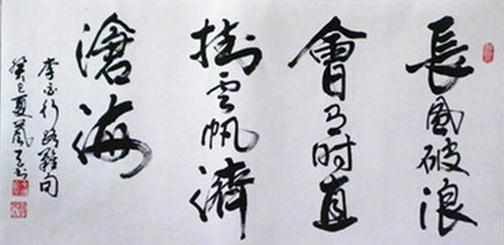 長風破浪
會有时直
掛雲帆濟
滄海
李白行路難句
癸巳夏